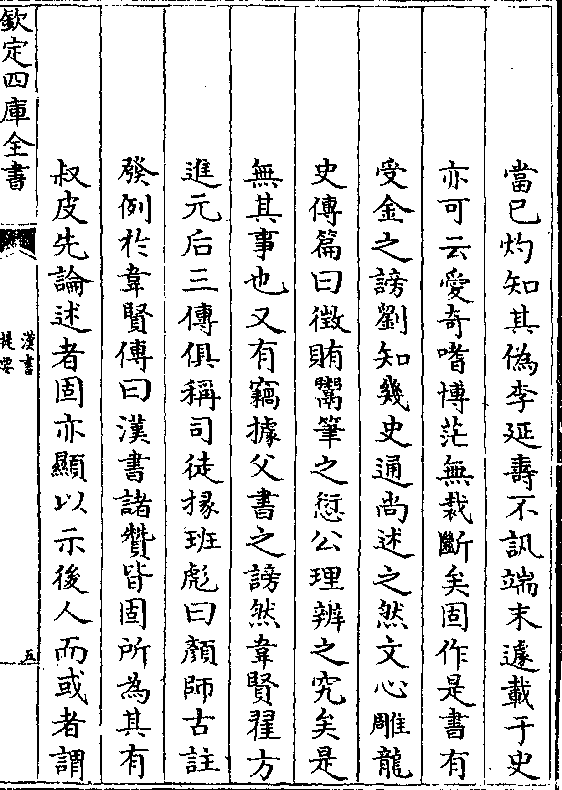 當已灼知其偽李延壽不訊端末遽載于史
亦可云愛奇嗜博茫無裁斷矣固作是書有
受金之謗劉知幾史通尚述之然文心雕龍
史傳篇曰徴賄鬻筆之愆公理辨之究矣是
無其事也又有竊據父書之謗然韋賢翟方
進元后三傳俱稱司徒掾班彪曰顔師古註
發例於韋賢傳曰漢書諸贊皆固所為其有
叔皮先論述者固亦顯以示後人而或者謂
欽定四庫全書
漢書
提要
五